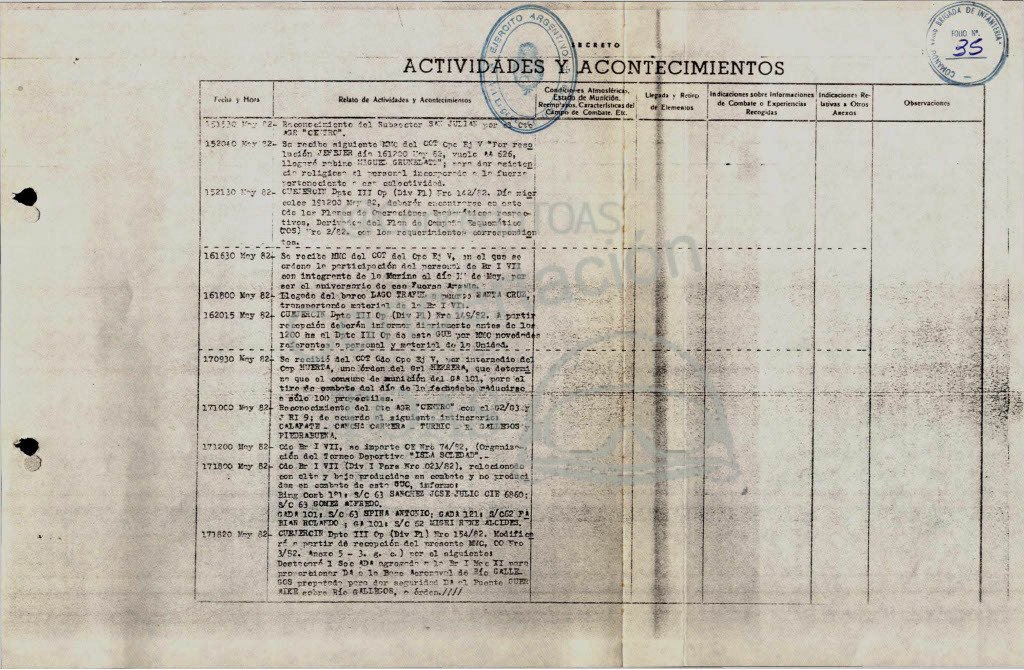 EJERCITO ARGENTINO
BRIGADA DE INFANTERIA
COMANDO
FOLIO Nº.
35
SECRETO
ACTIVIDADES Y ACONTECIMIENTOS
Fecha y Hora
Relato de Actividades y Acontecimientos
Condiciones Atmosféricas,
Estado de Munición,
Reemplazos, Características del
Campo de Combate, Etc.
Llegada y Retiro
de Elementos
Indicaciones sobre Informaciones
de Combate o Experiencias
Recogidas
Indicaciones Re-
lativas a Otros
Anexos
Observaciones
151530 May 82- Reconocimiento del Subsector SAN JULIAN por el Cte
AGR "CENTRO".
152040 May 82- Se recibe siguiente MMC del COT Cpo Ej V "Por reso
lución JEFEJER día 161200 May 82, vuelo AA 626,
llegará rabino MIGUEL para dar asisten
cia religiosa al personal incorporado a la fuerza
perteneciente a esa colectividad.
152130 May 82- CUEJERCIN Dpto III Op (Div Pl) Nro 142/82. Día mier
coles 191200 May 82, deberán encontrarse en este
Cdo los Planes de Operaciones Esquemáticos respec-
tivos, Derivados del Plan de Campaña Esquemático
(TOS) Nro 2/82, con los requerimientos correspondien
tes.
161630 May 82- Se recibe MMC del COT del Cpo Ej V, en el que se
ordena la participación del personal de Br I VII
con integrante de la Marina el día de May, por
ser el aniversario de esa Fuerza Armada.
161800 May 82- Llegada del barco LAGO TRAFUL a puerto SANTA CRUZ,
transportando material de la Br I VII.
162015 May 82- CUEJERCIN Dpto III Op (Div Pl) Nro 149/82. A partir
recepción deberán informar diariamente antes de los
1200 hs al Dpto III Op de este GUE por MMC novedades
referente a personal y material de la Unidad.
170930 May 82- Se recibió del COT Cdo Cpo Ej V, por intermedio del
Cap HUERTA, una órden del Grl HERRERA, que determi
na que el consumo de munición del GA 101, para el
tiro de combate del día de la fecha debe reducirse
a sólo 100 proyectiles.
171000 May 82- Reconocimiento del Cte AGR "CENTRO" con el 02/03 y
J RI 9; de acuerdo al siguiente intinerario:
CALAFATE - CANCHA CARRERA - TURBIO - R. GALLEGOS y
PIEDRABUENA.
171200 May 82- Cdo Br I VII, se imparte OE Nro 74/82, (Organiza-
ción del Torneo Deportivo "ISLA SOLEDAD".-
171800 May 82- Cdo Br I VII (Div I Pers Nro 023/82), relacionado
con alta y baja producidas en combate y no produci
das en combate de esta GUC, informo:
Bing Comb 121: S/C 63 SANCHEZ JOSE JULIO CIE 6860;
S/C 63 GOMEZ ALFREDO.
GADA 101: S/C 63 SPINA ANTONIO; GADA 121: S/C62 FA
BIAN ROLANDO ; GA 101: S/C 62 MIGRI RENE ALCIDES.
171820 May 82- CUEJERCIN Dpto III Op (Div Pl) Nro 154/82. Modifica
rá a partir de recepción del presente MMC, CO Nro
3/82. Anexo 5 - 3. g. c.) por el siguiente:
Destacará 1 Sec ADA agregada a la Br I Mec XI para
proporcionar DA a la Base Aeronaval de Río GALLE-
GOS preparada para dar seguridad DA al Puente GUER
AIKE sobre Río GALLEGOS, a órden.////